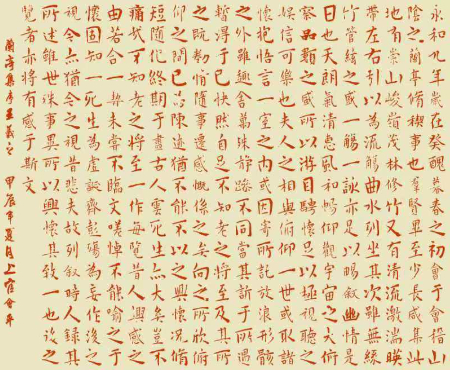 永和九年歲在癸醜暮春之初會于會稽山
陰之蘭亭脩稧事也羣賢畢至少長咸集此
地有崇山峻嶺茂林修竹又有清流激湍映
帶左右引以為流觴曲水列坐其次雖無絲
竹管絃之盛一觴一詠亦足以暢敘幽情是
日也天朗氣清惠風和暢仰觀宇宙之大俯
察品類之盛所以遊目騁懷足以極視聽之
娛信可樂也夫人之相與俯仰一世或取諸
懷抱悟言一室之內或因寄所託放浪形骸
之外雖趣舍萬殊靜躁不同當其欣於所遇
暫得于己快然自足不知老之將至及其所
之既惓情隨事遷感慨係之矣向之所欣俯
仰之間已為陳迹猶不能不以之興懷況脩
短隨化終期于盡古人云死生亦大矣豈不
痛哉每覽昔人興感之
由若合一契未嘗不臨文嗟悼不能喻之于
懷固知一死生為虛誕齊彭殤為妄作後之
視今亦猶今之視昔悲夫故列敘時人錄其
所述雖世殊事異所以興懷其致一也後之
覽者亦將有感于斯文
蘭亭集序王羲之 甲辰年夏月上官會平